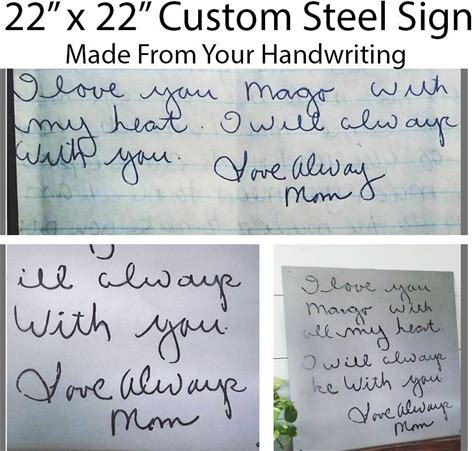 22” x 22” Custom Steel Sign
Made From Your Handwriting
I love you Mago with
my heat. I will always
with you.
Love Alway
Mom
ill always
With you.
Love Always
Mom
I love you
Mango with
all my heart.
I will always
be With you
Love Always
Mom